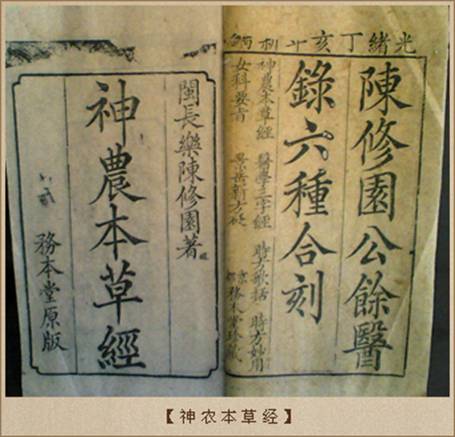 光緒丁亥
陳修園公餘醫
錄六種合刻
神農本草經 醫學三字經 時方歌括 時方妙用
女科要旨 景岳新方砭 務本堂珍藏
閩長樂陳修園著
神農本草經
務本堂原版
【神农本草经】